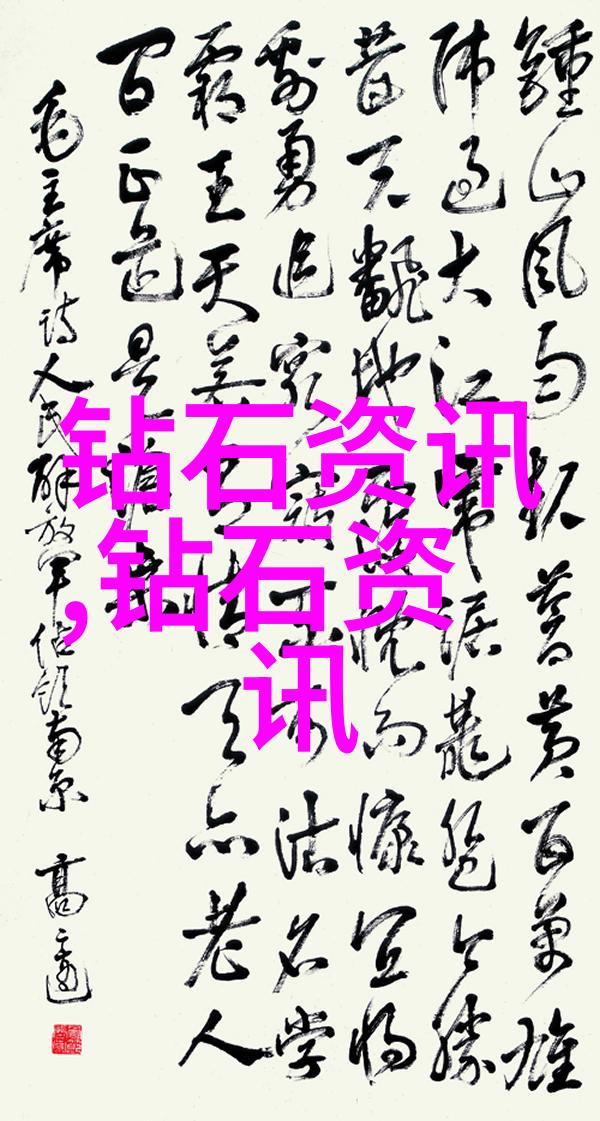 鍾山风雨起蒼黄百萬雄
师过大江虎踞龍盤今勝
昔天翻地覆慨而慷宜將
剩勇追窮寇不可沽名学
霸王天若有情天亦老人
间正道是滄桑
毛主席诗人民解放军佔领南京 高
钻石资讯
,钻石资
讯